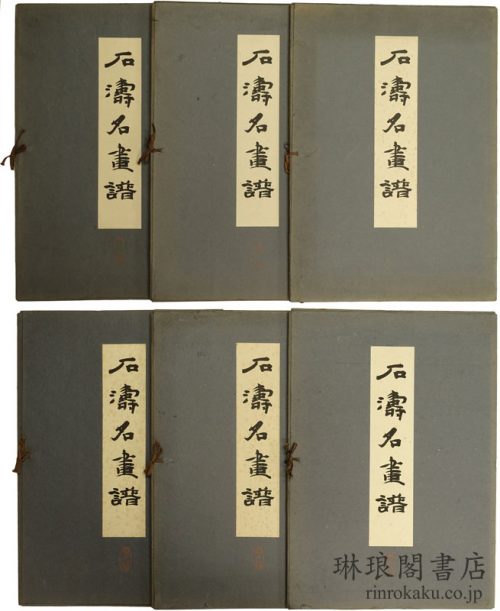 石濤名畫譜
石濤名畫譜
石濤名畫譜
石濤名畫譜
石濤名畫譜
石濤名畫譜
琳琅閣書店
rinrokaku.co.jp